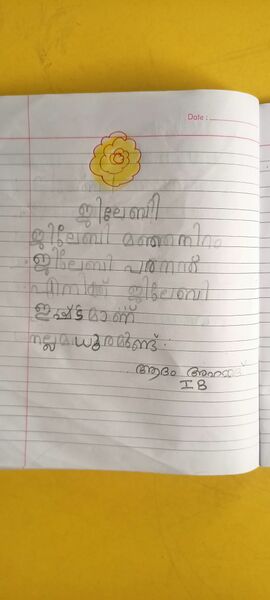 Date :
ജിലേബി
ജിലേബി മഞ്ഞനിറം
ജിലേബി പരന്നത്
എനിക്ക് ജിലേബി
ഇഷ്ട്ടമാണ്
നല്ല മധുരമുണ്ട്.
ആദം അഹമ്മദ്
I B